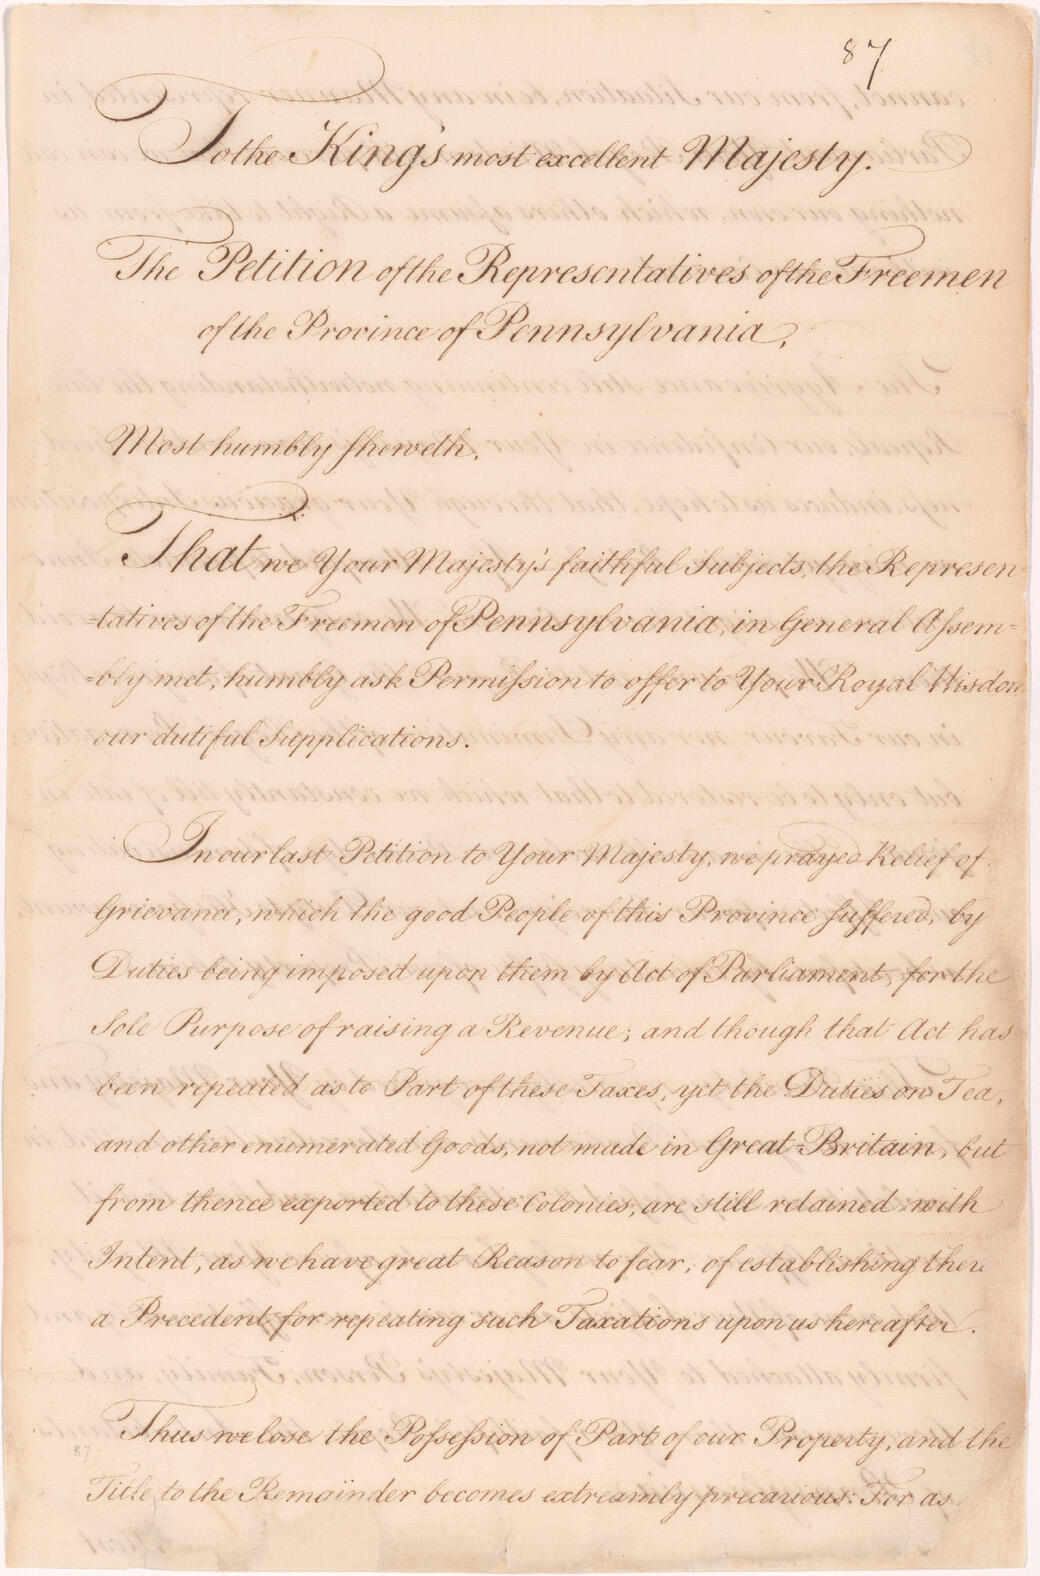 87
To the King's most excellent Majesty.
The Petition of the Representatives of the Freemen
of the Province of Pennsylvania,
Most humbly sheweth,
That we Your Majesty's faithful Subjects, the Represen=
=tatives of the Freemen of Pennsylvania, in General Assem=
=bly met, humbly ask Permission to offer to Your Royal Wisdom
our dutiful Supplications.
In our last Petition to Your Majesty, we prayed Relief of
Grievance, which the good People of this Province suffered, by
Duties being imposed upon them by Act of Parliament, for the
Sole Purpose of raising a Revenue; and though that Act has
been repeated as to Part of these Taxes, yet the Duties on Tea,
and other enumerated Goods, not made in Great-Britain, but
from thence exported to these Colonies, are still retained with
Intent, as we have great Reason to fear, of establishing there
a Precedent for repeating such Taxations upon us hereafter.
Thus we lose the Possession of Part of our Property, and the
87
Title to the Remainder becomes extreamly precarious: For as